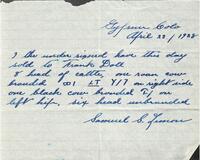 Gypsum Colo
April 22 / 1922
I the undersigned have this day
sold to Frank Doll
8 head of cattle, one roan cow
branded AT Y/7 on right side
one black cow branded on
left hip, six head unbranded
Samuel